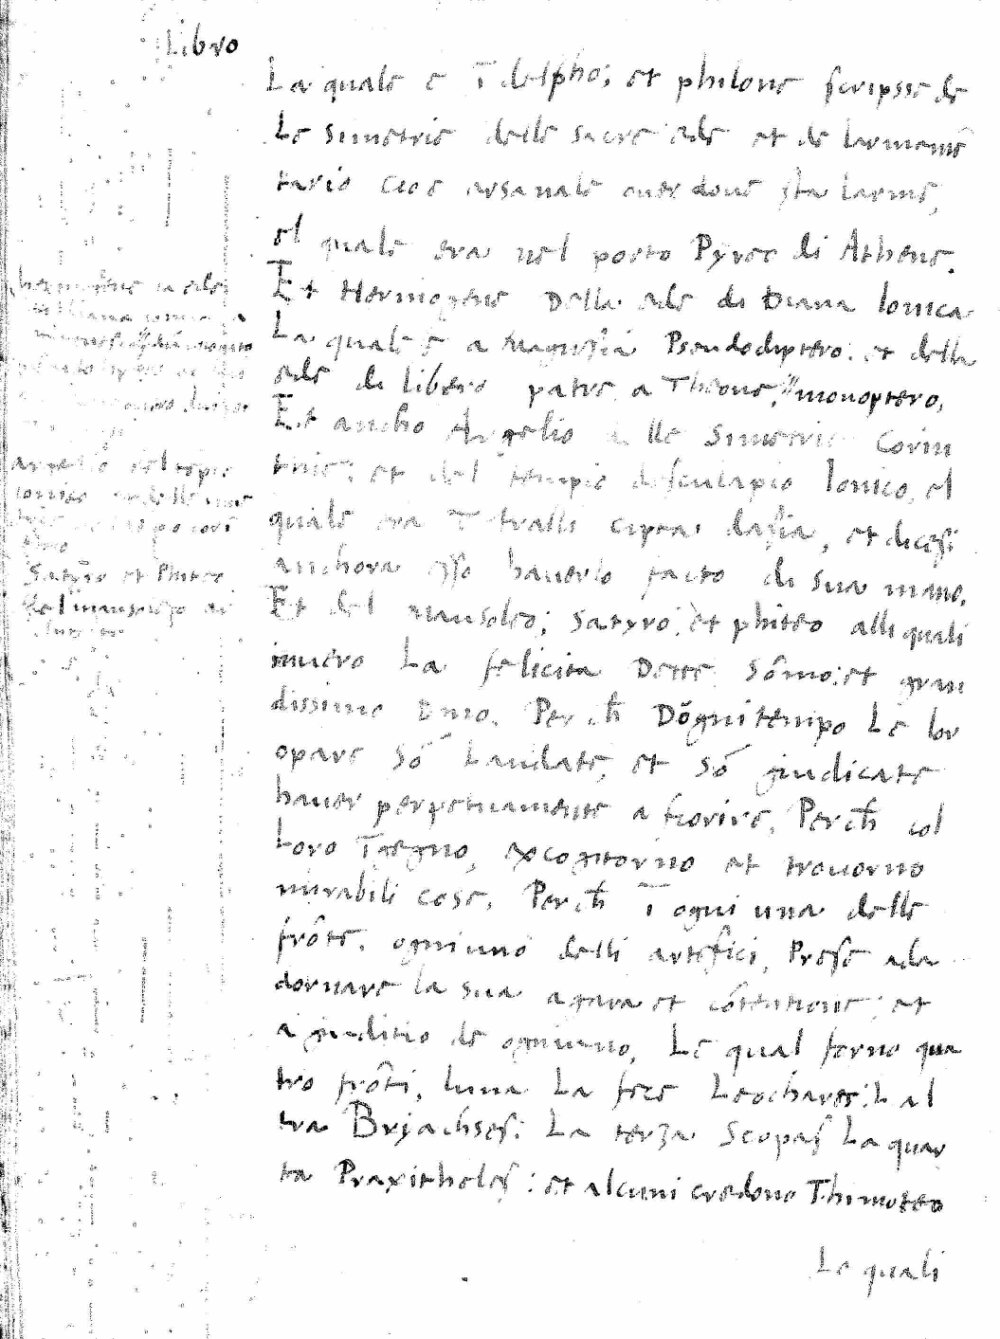 Libro
La quale e ī delpho; et philone scripsse de
Le simetrie delle sacre ede et de larmamē
tario cioe arsanale ouer doue sta larme,
el quale era nel porto Pyreo di Athene.
Et Hermogene Della ede di Diana Ionica
La quale e a magnesia Pseudodiptero: et della
ede di libero patre a Theone, monoptero,
Et ancho Argelio delle Simetrie Corin
thie; et del tempio desculapio Ionico, el
quale era ī tralli cipta dasia, et dicesi
anchora esso hauerlo facto di sua mano.
Et del mausoleo; Satyro; et phiteo alli quali
inuero La felicita Dette sōmo: et gran
dissimo Dono. Perch̄ Dōgni tempo Le lor
opare sō Laudate, et sō giudicate
hauer perpetuamente a fiorire, Perch̄ col
Loro īgegno, excogitorno et trouorno
mirabili cose, Perch̄ ī ogni una delle
frōte, ogniuno delli artifici, Prese ada
dornare la sua a gara et cōtentione; et
a giuditio de ogniuno, Le qual ferno qua
tro frōti, luna La fece Leochares: Lal
tra Bryachses: La terza Scopas La quar
ta Praxitheles: et alcuni credono Thimoteo
Le quali
argelio del tēpio
Satyro et Phiteo
del mausoleo